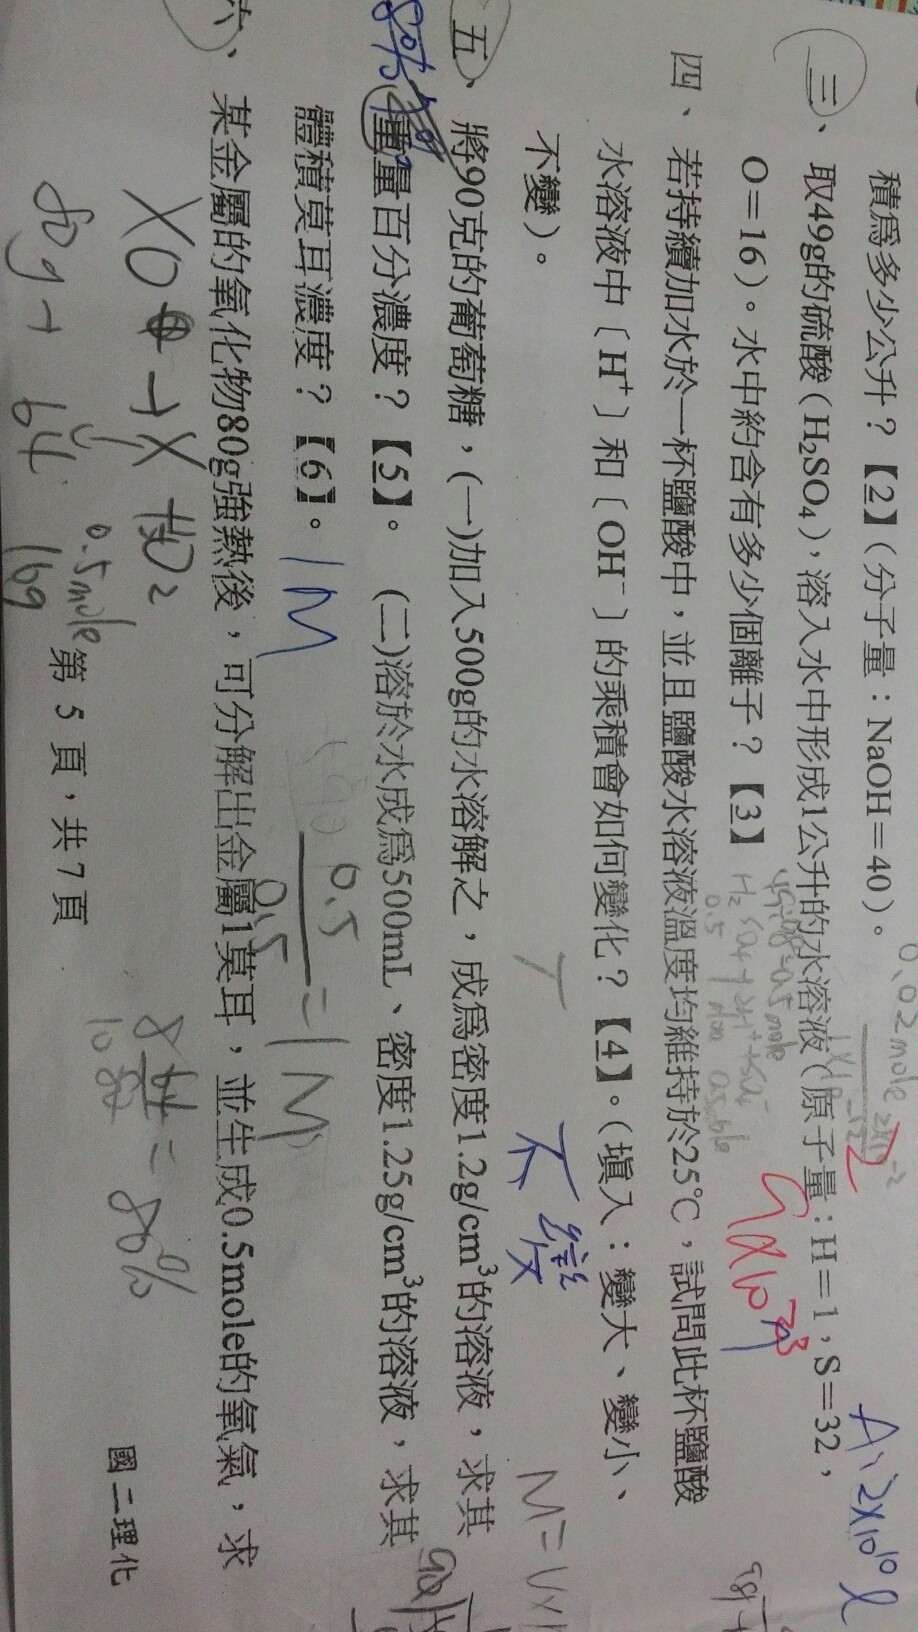 積為多少公升？【2】(分子量：NaOH＝40)。
0.02mole
A、2X10¹⁰ l
三、取49g的硫酸(H₂SO₄)，溶入水中形成1公升的水溶液(原子量：H＝1，S＝32，
O＝16)。水中約含有多少個離子？【3】
四、若持續加水於一杯鹽酸中，並且鹽酸水溶液溫度均維持於25℃，試問此杯鹽酸
水溶液中〔H⁺〕和〔OH⁻〕的乘積會如何變化？【4】。(填入：變大、變小、
不變)。
不變
五、將90克的葡萄糖，(一)加入500g的水溶解之，成為密度1.2g/cm³的溶液，求其
重量百分濃度？【5】。 (二)溶於水成為500mL、密度1.25g/cm³的溶液，求其
體積莫耳濃度？【6】。
1M
0.5
0.5
=1M
六、某金屬的氧化物80g強熱後，可分解出金屬1莫耳，並生成0.5mole的氧氣，求
XO → X + O₂
0.5mole
80g → 64 16g
= 80%
第 5 頁，共 7 頁
國二理化